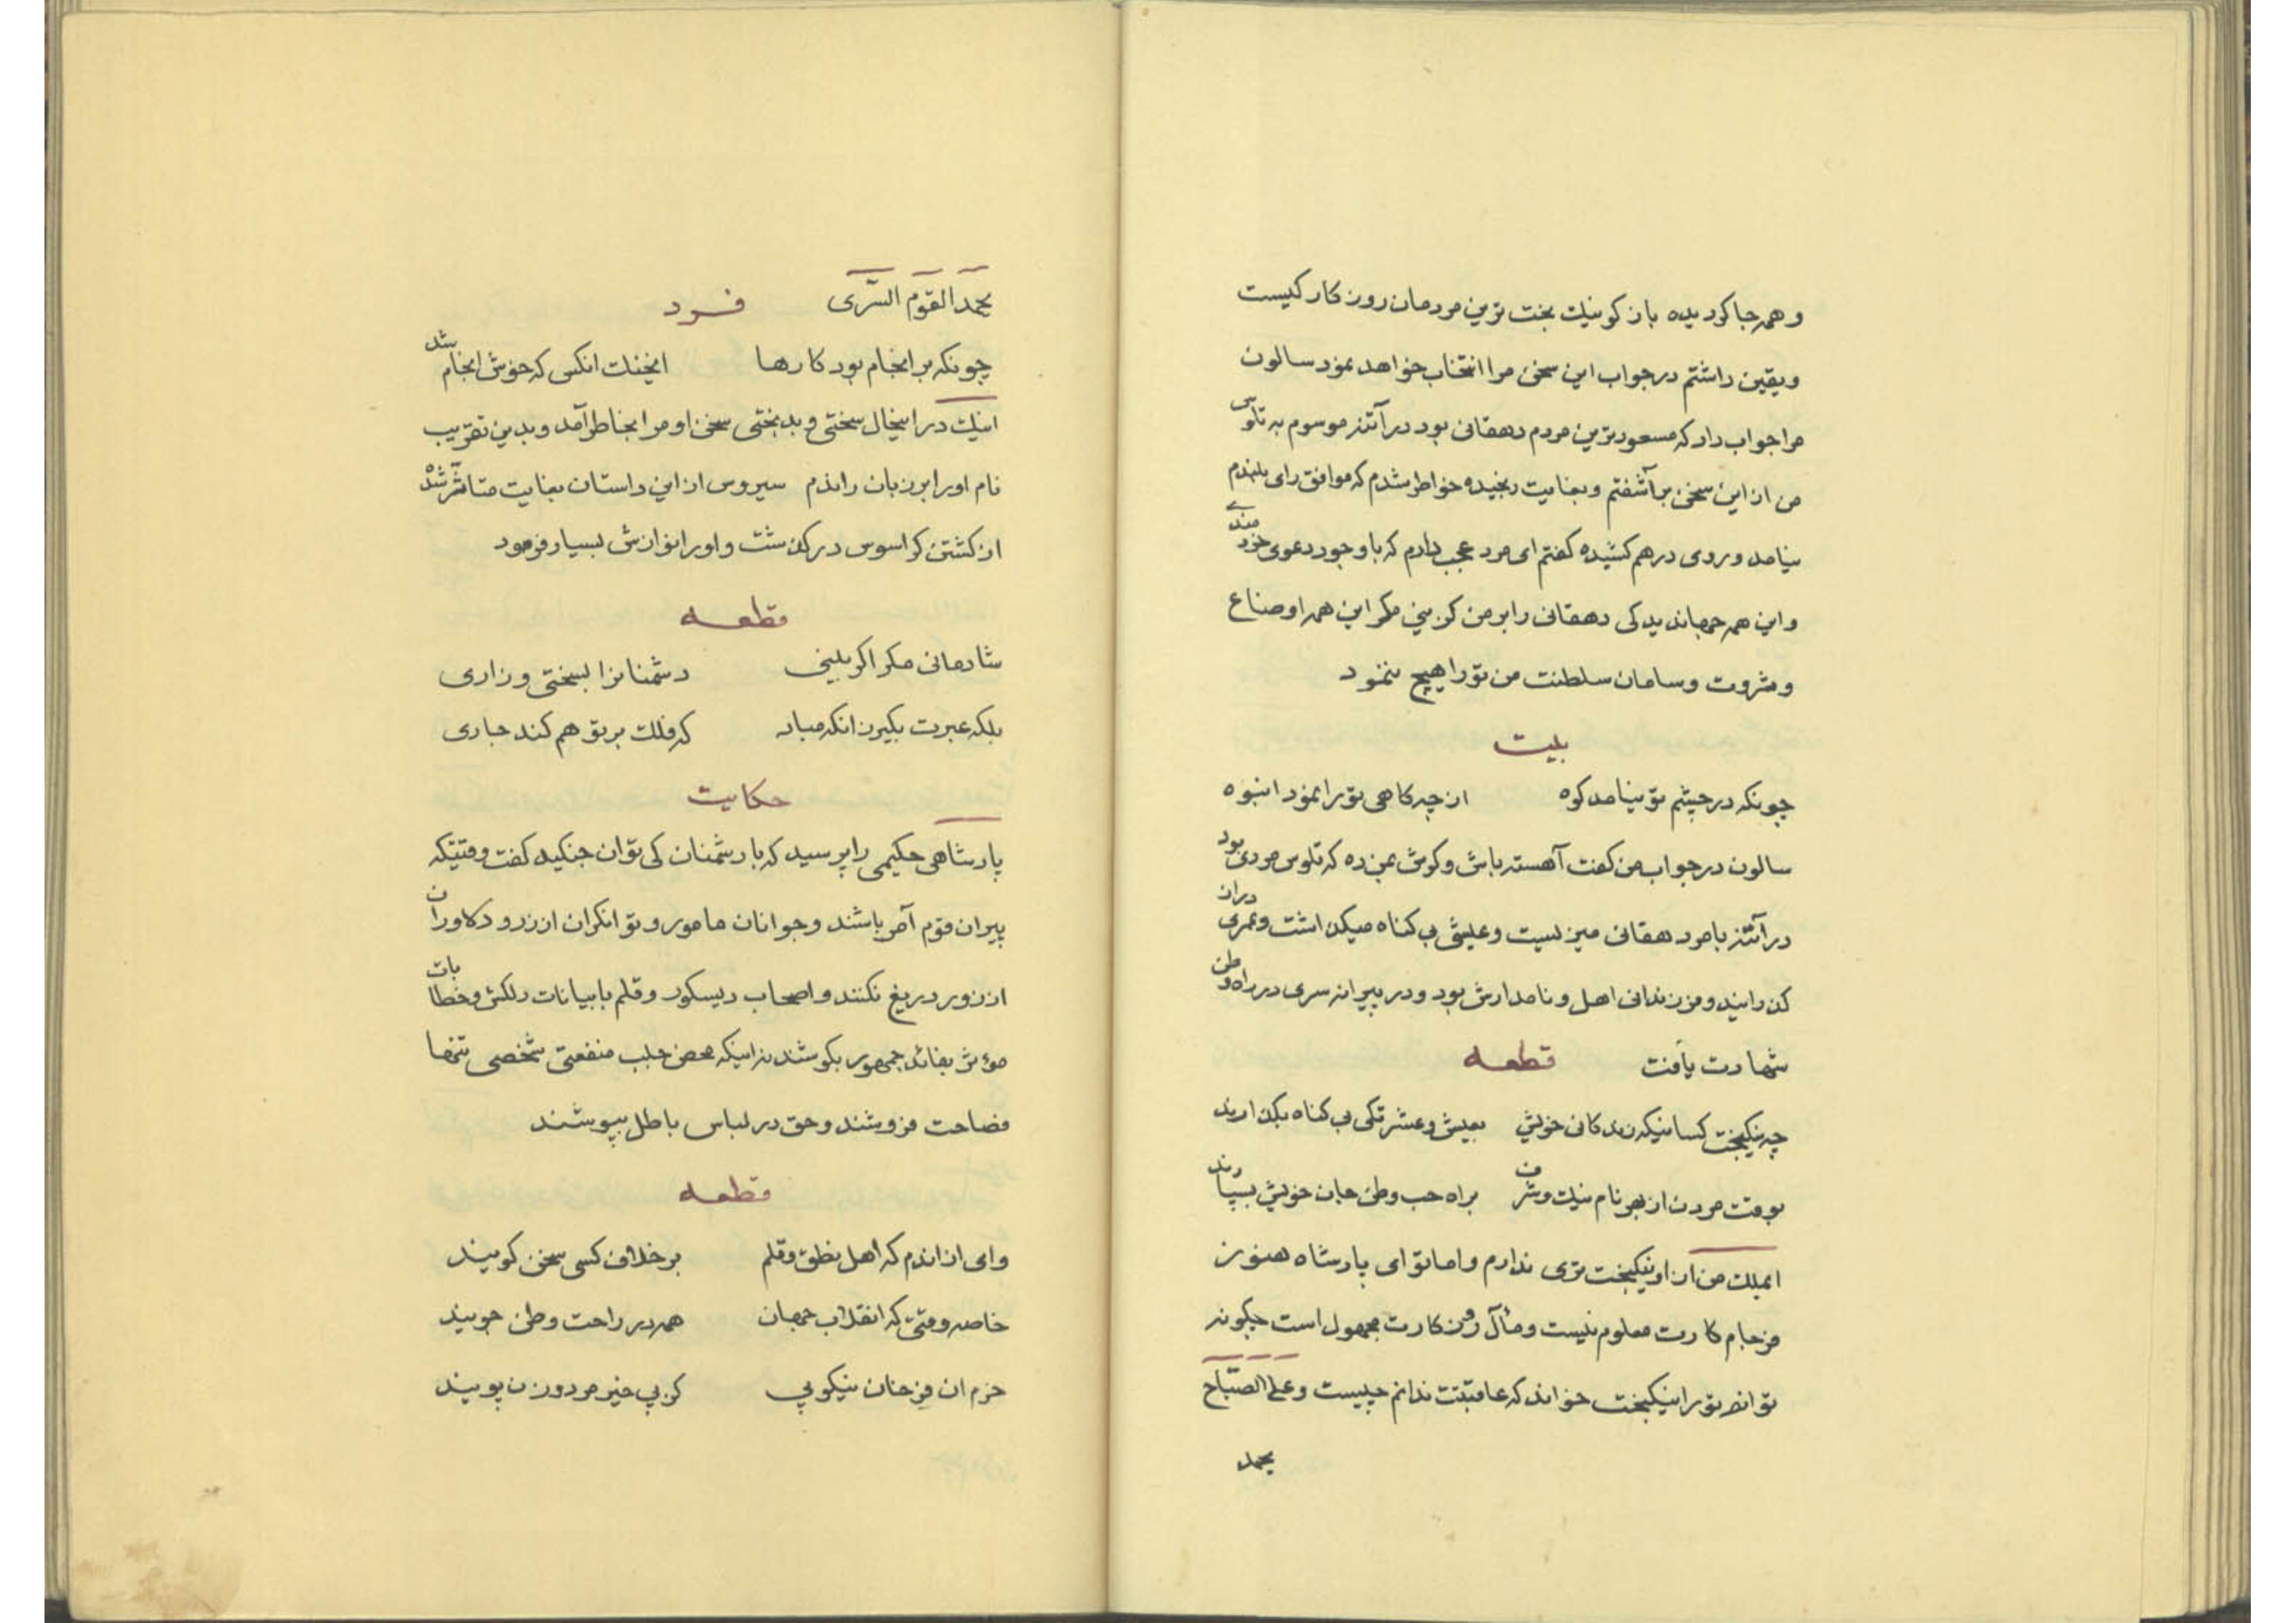 و همه جا کردیده باز کو نیك بخت ترین مردمان روزکار کیست
و یقین داشتم در جواب این سخن مرا انتخاب خواهد نمود سالون
مرا جواب داد که مسعودترین مردم دهقانی بود در آتنز موسوم به تلوس
من از این سخن برآشفتم و بغایت رنجیده خواطر شدم که موافق رای بلندم
نیامد و روی درهم کشیده کفتم ای مرد عجب دارم که با وجود دعوی خردمندی
و این همه جهاندیدکی دهقانی را بر من کزینی مکر این همه اوضاع
و ثروت و سامان سلطنت من تو را هیچ ننمود
بیت
چونکه در چشم تو نیامد کوه از چه کاهی تو را نمود انبوه
سالون در جواب من کفت آهسته باش و کوش بمن ده که تلوس مردی بود
در آتنز با مرد هقانی میزیست و عیش بی کناه میکذاشت و عمری دران
کذرانید و فرزندانی اهل و نامدارش بود و در پیرانه سری در راه وطن
شهادت یافت قطعه
چه نیکبخت کسانیکه زندکانی خویش بعیش و عشرتکی بی کناه بکذارند
بوقت مردن از بهر نام نیك و شرف براه حب وطن جان خویش بسپارند
ایملك من از او نیکبخت تری ندارم و اما تو ای پادشاه هنوز
فرجام کارت معلوم نیست و مآل روزکارت مجهول است چکونه
توانم تو را نیکبخت خواند که عاقبتت ندانم چیست و علی الصّباح
یحمد
یحمد القوم السّری فرد
چونکه بر انجام بود کارها ایخنك انکس که خوش انجام شد
اینك در اینحال سختی و بدبختی سخن او مرا بخاطر آمد و بدین تقریب
نام او را بر زبان راندم سیروس از این داستان بغایت متاثّر شدْ
از کشتن کراسوس درکذشت و او را نوازش بسیار فرمود
قطعه
شادمانی مکن اکر بینی دشمنانرا بسختی و زاری
بلکه عبرت بکیر زانکه مباد که فلك بر تو هم کند جاری
حکایت
پادشاهی حکیمی را پرسید که با دشمنان کی توان جنکید کفت وقتیکه
پیران قوم آمر باشند و جوانان مامور و توانکران از زر و دلاوران
از زور دریغ نکنند و اصحاب دیسکور و قلم با بیانات دلکش و خطابات
مؤثر بفائد جمهور بکوشند نه اینکه محض جلب منفعتی شخصی تنها
فصاحت فروشند و حق در لباس باطل بپوشند
قطعه
وای از اندم که اهل نطق و قلم بر خلاف کسی سخن کویند
خاصه وقتی که انقلاب جهان همه در راحت وطن جویند
خرم ان فرخنان نیکویی کز پی خیر مرد و زن پویند